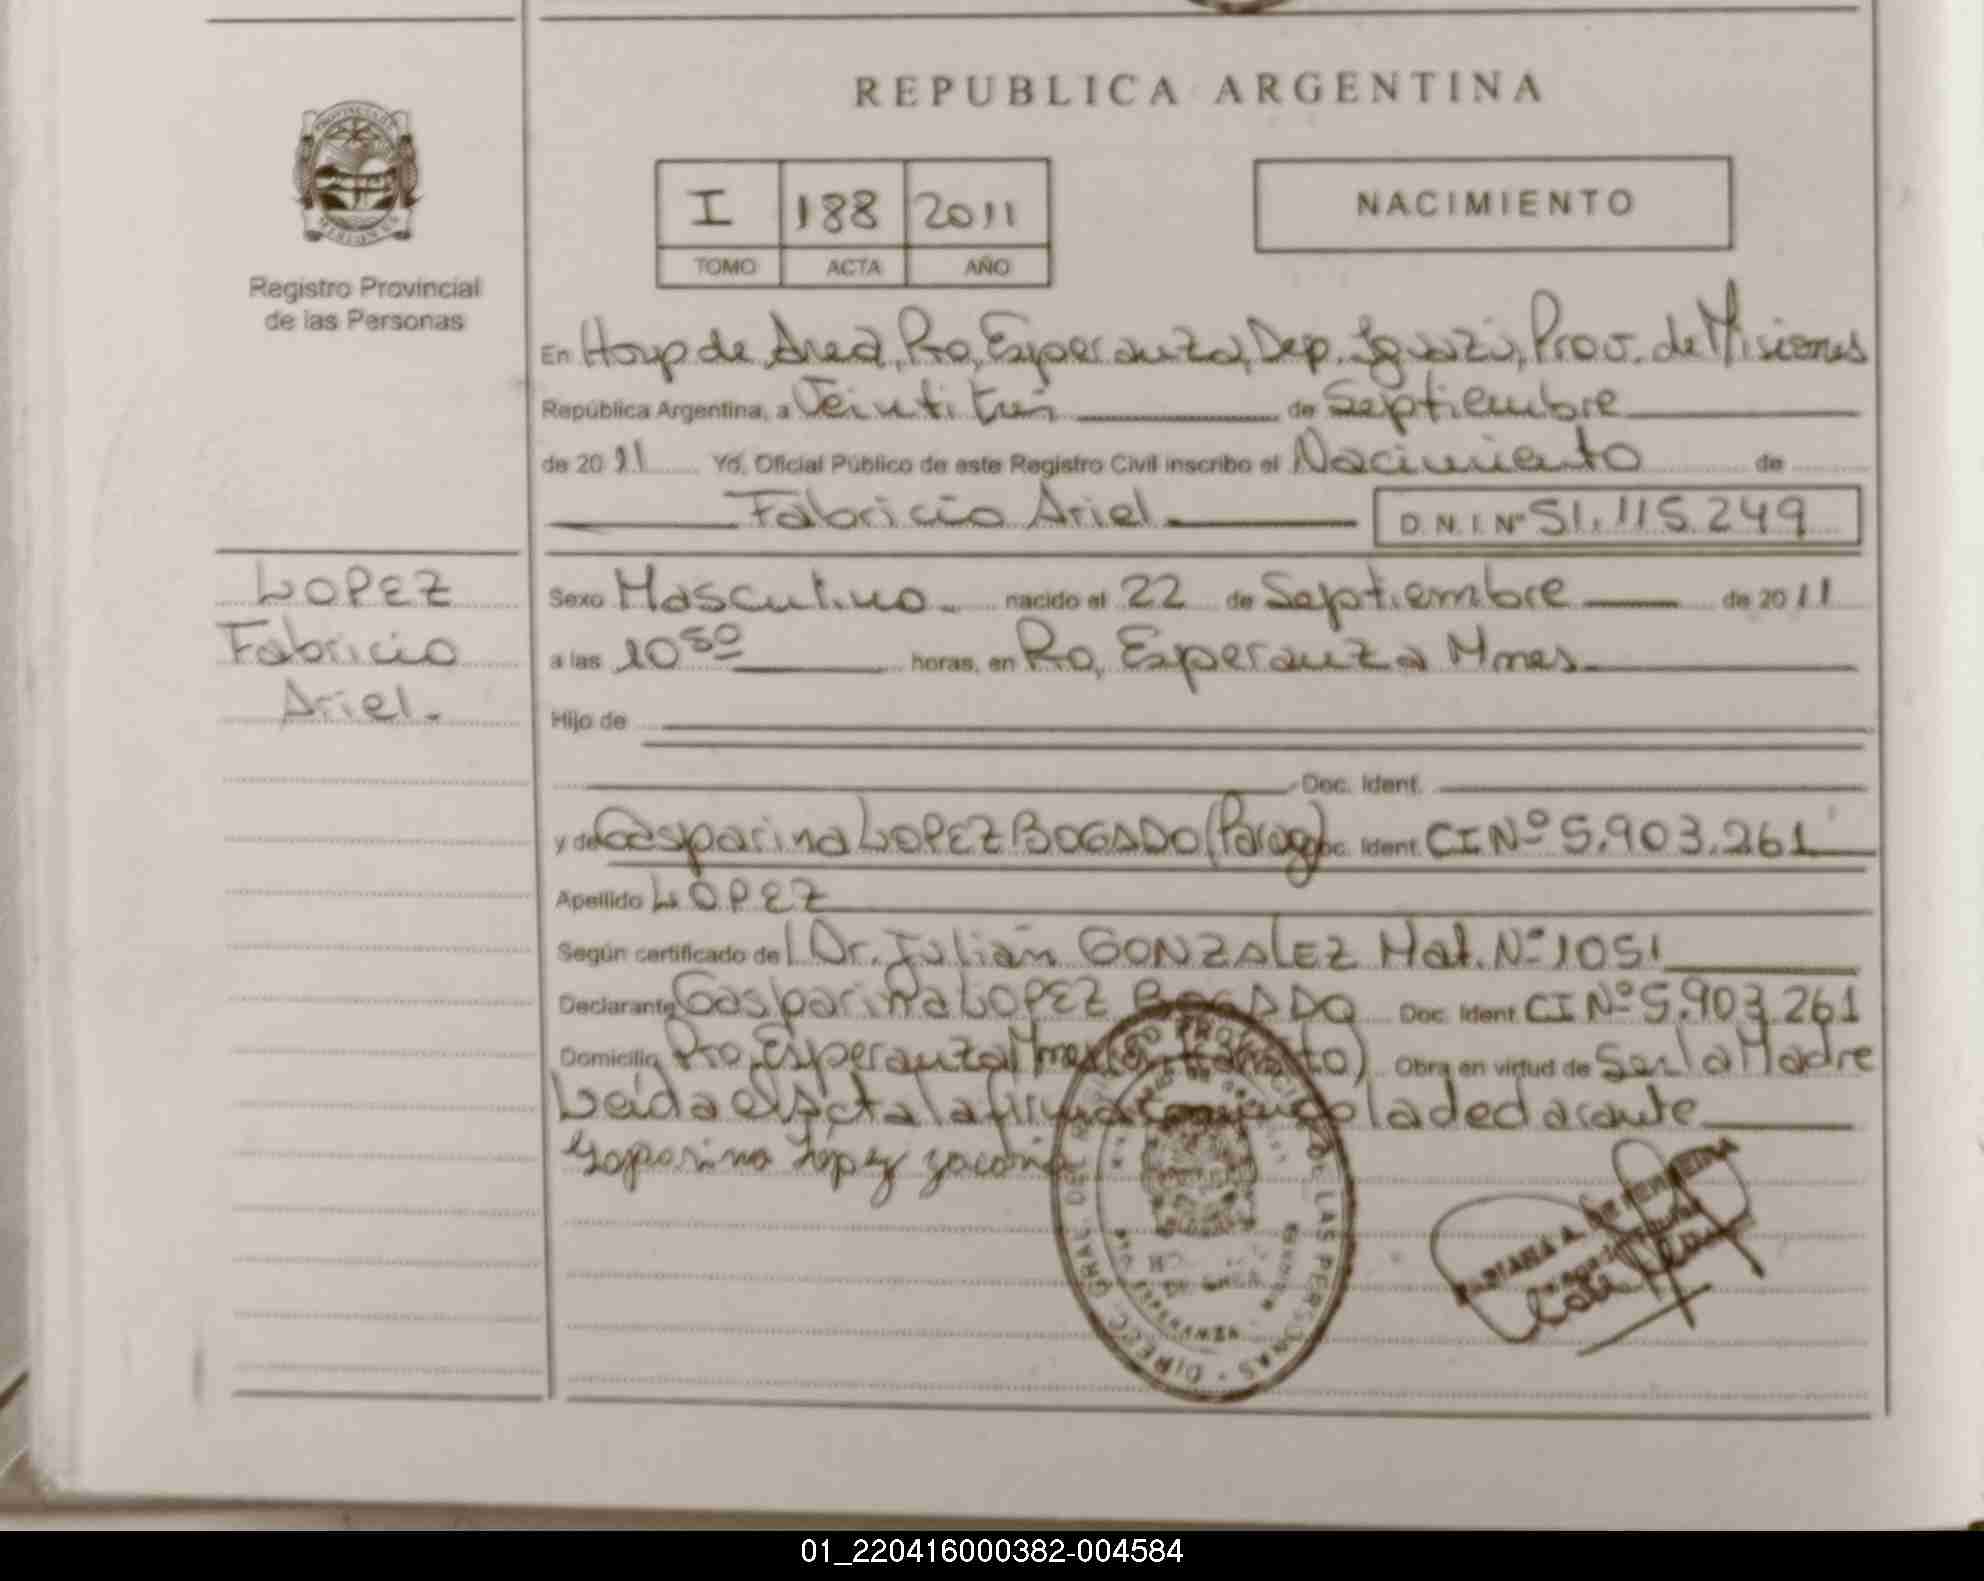 REPUBLICA ARGENTINA
I 188 2011
TOMO ACTA AÑO
NACIMIENTO
Registro Provincial
de las Personas
En Hosp de Area, Pto, Esperanza, Dep. Iguazú, Prov. de Misiones
República Argentina, a Veintitres de Septiembre
de 2011 Yo, Oficial Público de este Registro Civil inscribo el Nacimiento de
Fabricio Ariel D.N.I. Nº 51.115.249
LOPEZ
Fabricio
Ariel.
Sexo Masculino. nacido el 22 de Septiembre de 2011
a las 10 50 horas, en Pto, Esperanza Mnes.
Hijo de
Doc. Ident.
y de Gasparina LOPEZ BOGADO (Parag) Doc. Ident. CI Nº 5.903.261
Apellido LOPEZ
Según certificado del Dr. Julián GONZALEZ Mat. Nº 1051
Declarante Gasparina LOPEZ BOGADO Doc. Ident. CI Nº 5.903.261
Domicilio Pto, Esperanza Mnes Obra en virtud de Ser la Madre
Leída el Acta la firma conmigo la declarante
DIREC. GRAL. DE LAS PERSONAS
01_220416000382-004584